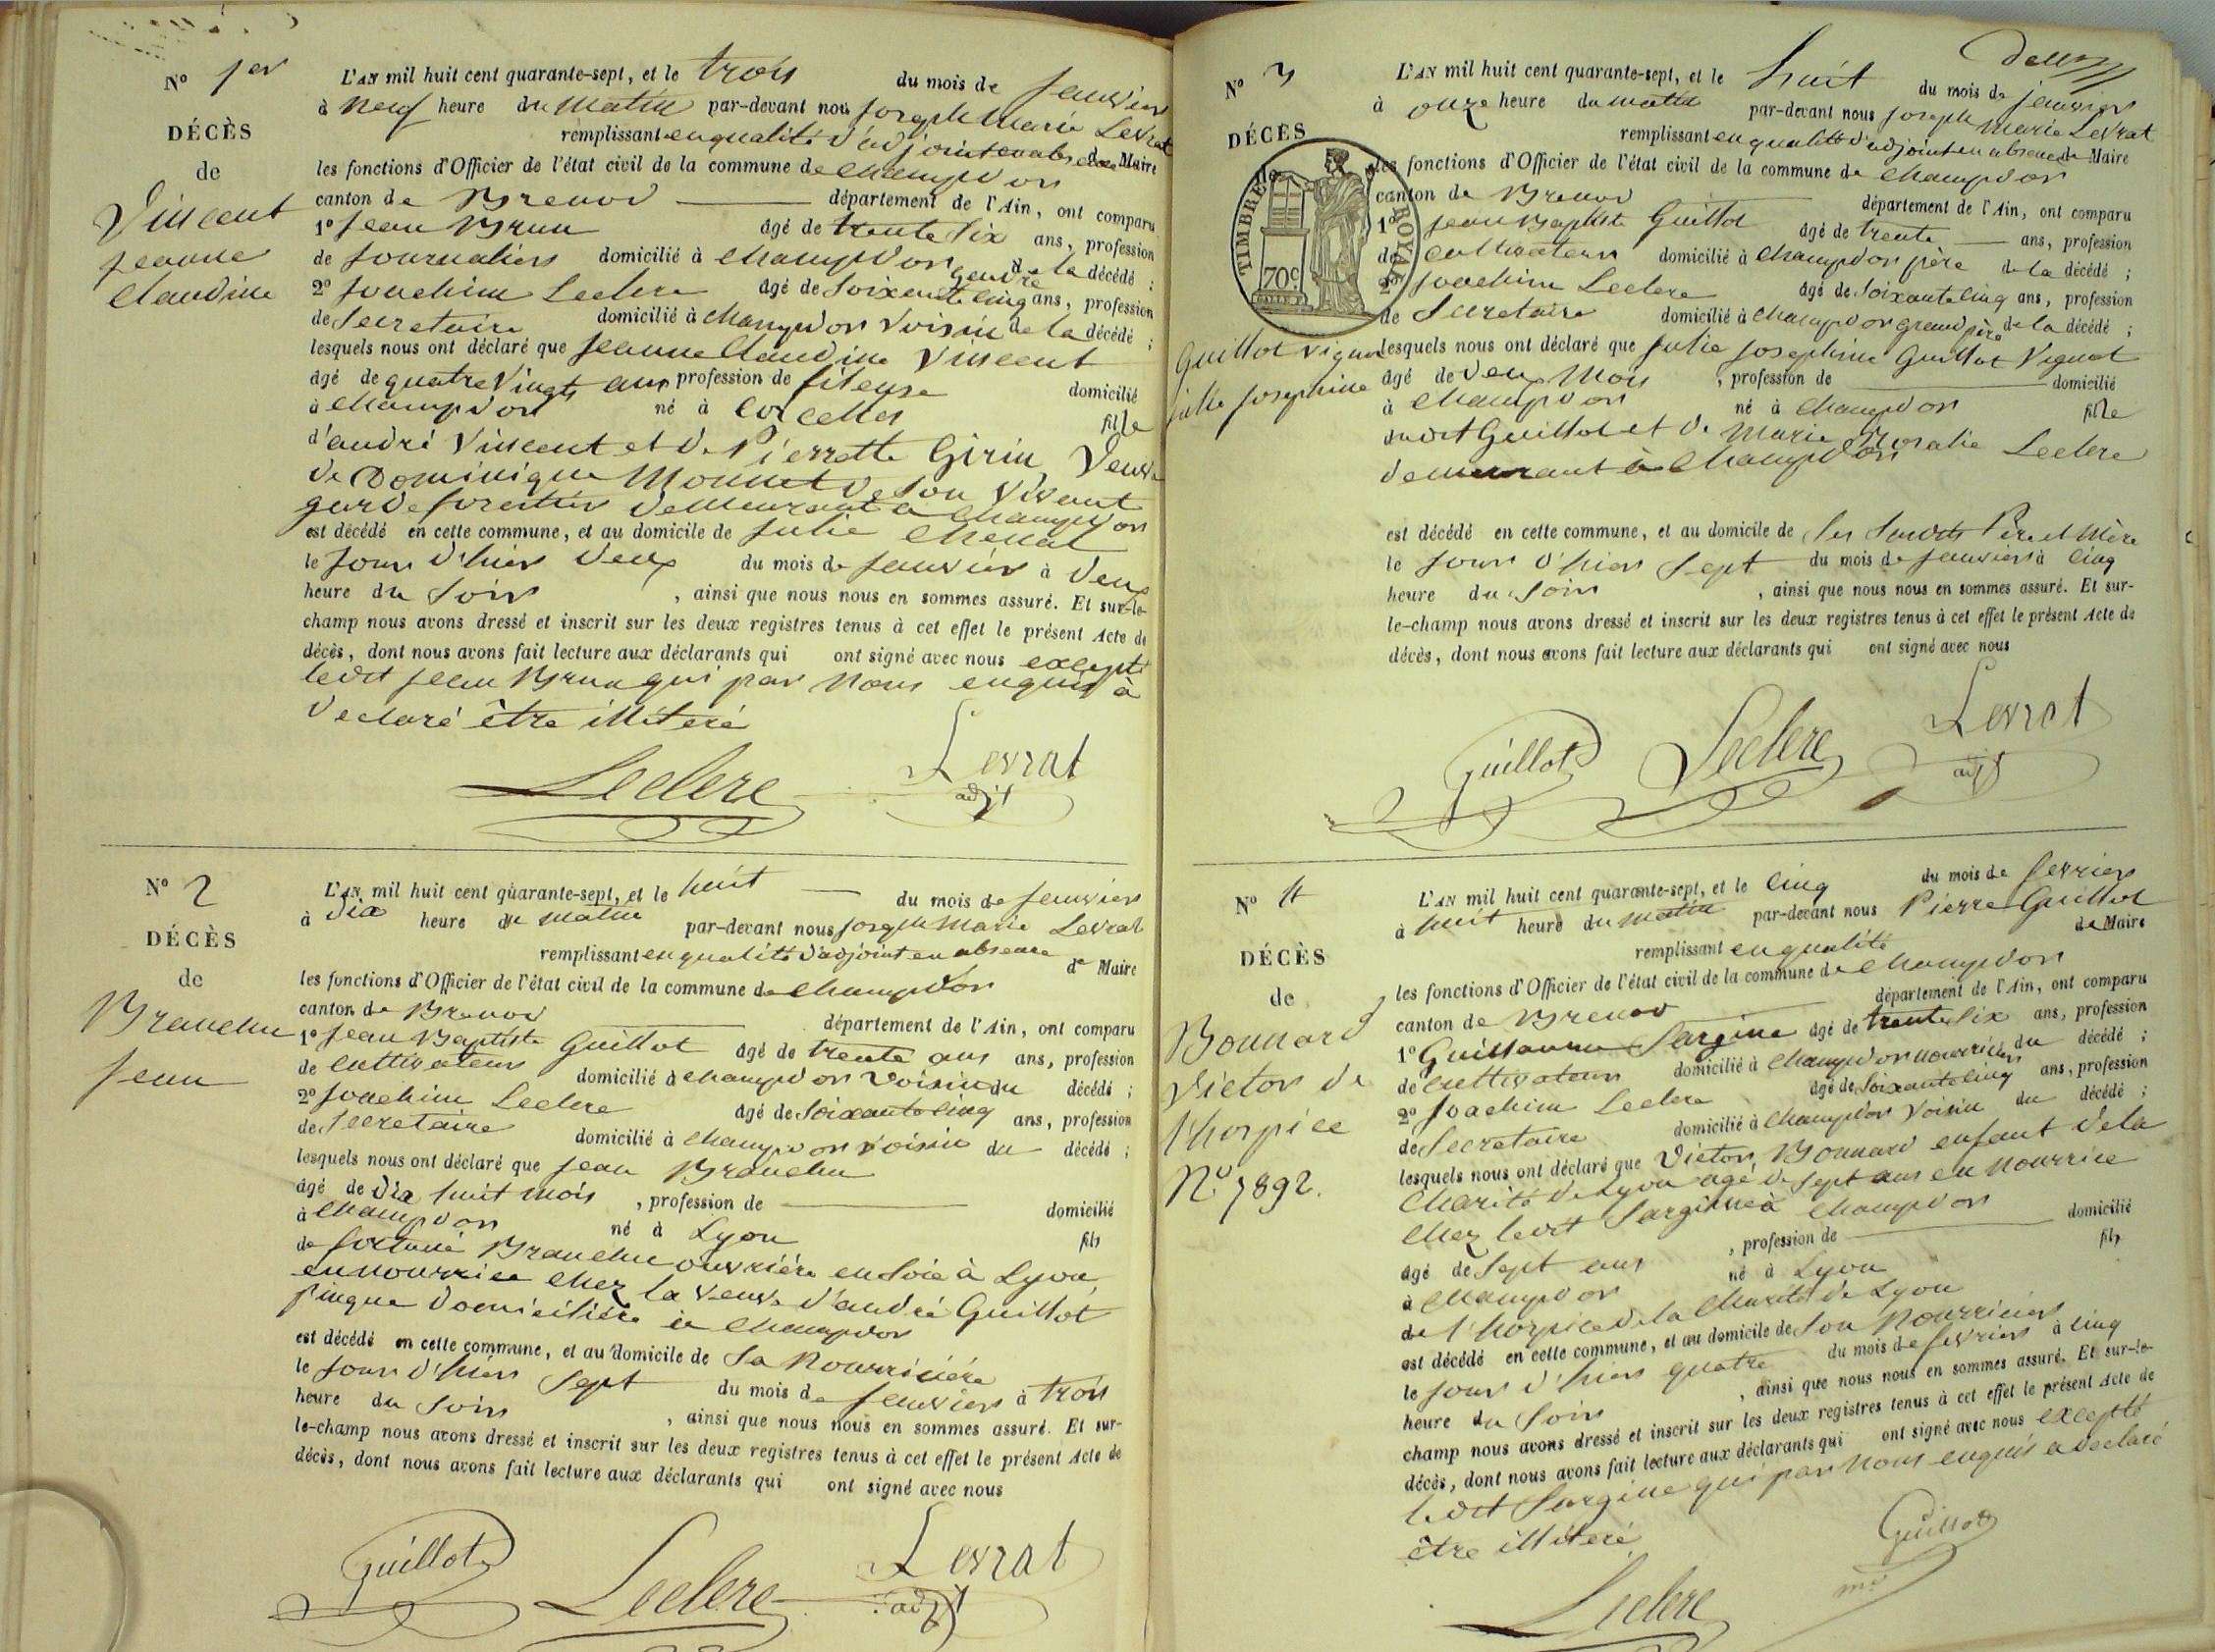 N° 1er
DÉCÈS
de
Vincent
jeanne
Claudine
L'AN mil huit cent quarante-sept, et le trois du mois de janvier
à neuf heure du matin par-devant nous joseph Marie Levrat
remplissant en qualité d'adjoint en absence du Maire
les fonctions d'Officier de l'état civil de la commune de champdor
canton de Brenod département de l'Ain, ont comparu
1° jean Brun âgé de trente six ans, profession
de journalier domicilié à champdor gendre de la décédé ;
2° joachim Leclerc âgé de soixante cinq ans, profession
de secretaire domicilié à champdor voisin de la décédé ;
lesquels nous ont déclaré que jeanne Claudine Vincent
âgé de quatre vingts ans profession de fileuse domicilié
à champdor né à Corcelles fille
d'andré Vincent et de Pierrette Girin veuve
de Dominique Monnet de son vivant
garde forestier demeurant à champdor
est décédé en cette commune, et au domicile de julie
le jour d'hier deux du mois de janvier à deux
heure du soir , ainsi que nous nous en sommes assuré. Et sur-le-
champ nous avons dressé et inscrit sur les deux registres tenus à cet effet le présent Acte de
décès, dont nous avons fait lecture aux déclarants qui ont signé avec nous excepté
ledit jean Brun qui par nous enquis à
declaré être illiteré
Leclerc Levrat
adjt
N° 2
DÉCÈS
de
Branchu
jean
L'AN mil huit cent quarante-sept, et le huit du mois de janvier
à dix heure du matin par-devant nous joseph Marie Levrat
remplissant en qualité d'adjoint en absence de Maire
les fonctions d'Officier de l'état civil de la commune de champdor
canton de Brenod département de l'Ain, ont comparu
1° jean Baptiste Guillot âgé de trente ans ans, profession
de cultivateur domicilié à champdor voisin du décédé ;
2° joachim Leclerc âgé de soixante cinq ans, profession
de secretaire domicilié à champdor voisin du décédé ;
lesquels nous ont déclaré que jean Branchu
âgé de dix huit mois , profession de domicilié
à champdor né à Lyon fils
de Branchu ouvrière en soie à Lyon,
en nourrice chez la veuve d'andré Guillot
pingue domiciliée à champdor
est décédé en cette commune, et au domicile de sa Nourricière
le jour d'hier sept du mois de janvier à trois
heure du soir , ainsi que nous nous en sommes assuré. Et sur-
le-champ nous avons dressé et inscrit sur les deux registres tenus à cet effet le présent Acte de
décès, dont nous avons fait lecture aux déclarants qui ont signé avec nous
Guillot Leclerc Levrat
adjt
deux
N° 3
DÉCÈS
de
TIMBRE ROYAL
70c
Guillot Vignat
julie josephine
L'AN mil huit cent quarante-sept, et le huit du mois de janvier
à onze heure du matin par-devant nous joseph Marie Levrat
remplissant en qualité d'adjoint en absence du Maire
les fonctions d'Officier de l'état civil de la commune de champdor
canton de Brenod département de l'Ain, ont comparu
1° jean Baptiste Guillot âgé de trente ans, profession
de cultivateur domicilié à champdor père de la décédé ;
2° joachim Leclerc âgé de soixante cinq ans, profession
de secretaire domicilié à champdor grand père de la décédé ;
lesquels nous ont déclaré que julie josephine Guillot Vignat
âgé de deux mois , profession de domicilié
à champdor né à champdor fille
dudit Guillot et de Marie Rosalie Leclerc
demeurant à champdor
est décédé en cette commune, et au domicile de ses susdits Père et Mère
le jour d'hier sept du mois de janvier à cinq
heure du soir , ainsi que nous nous en sommes assuré. Et sur-
le-champ nous avons dressé et inscrit sur les deux registres tenus à cet effet le présent Acte de
décès, dont nous avons fait lecture aux déclarants qui ont signé avec nous
Guillot Leclerc Levrat
adjt
N° 4
DÉCÈS
de
Bonnard
Victor de
l'hospice
N° 7892.
L'AN mil huit cent quarante-sept, et le cinq du mois de fevrier
à huit heure du matin par-devant nous Pierre Guillot
remplissant en qualité de Maire
les fonctions d'Officier de l'état civil de la commune de champdor
canton de Brenod département de l'Ain, ont comparu
1° Guillaume Sargine âgé de trente six ans, profession
de cultivateur domicilié à champdor nourricier du décédé ;
2° Joachim Leclerc âgé de soixante cinq ans, profession
de secretaire domicilié à champdor voisin du décédé ;
lesquels nous ont déclaré que Victor Bonnard enfant de la
charité de Lyon agé de sept ans en nourrice
chez ledit Sargine à champdor
, profession de domicilié
âgé de sept ans né à Lyon fils
à champdor
de l'hospice de la Charité de Lyon
est décédé en cette commune, et au domicile de son Nourricier
le jour d'hier quatre du mois de fevrier à cinq
heure du soir , ainsi que nous nous en sommes assuré. Et sur-le-
champ nous avons dressé et inscrit sur les deux registres tenus à cet effet le présent Acte de
décès, dont nous avons fait lecture aux déclarants qui ont signé avec nous excepté
ledit Sargine qui par nous enquis a declaré
être illiteré
Leclerc Guillot